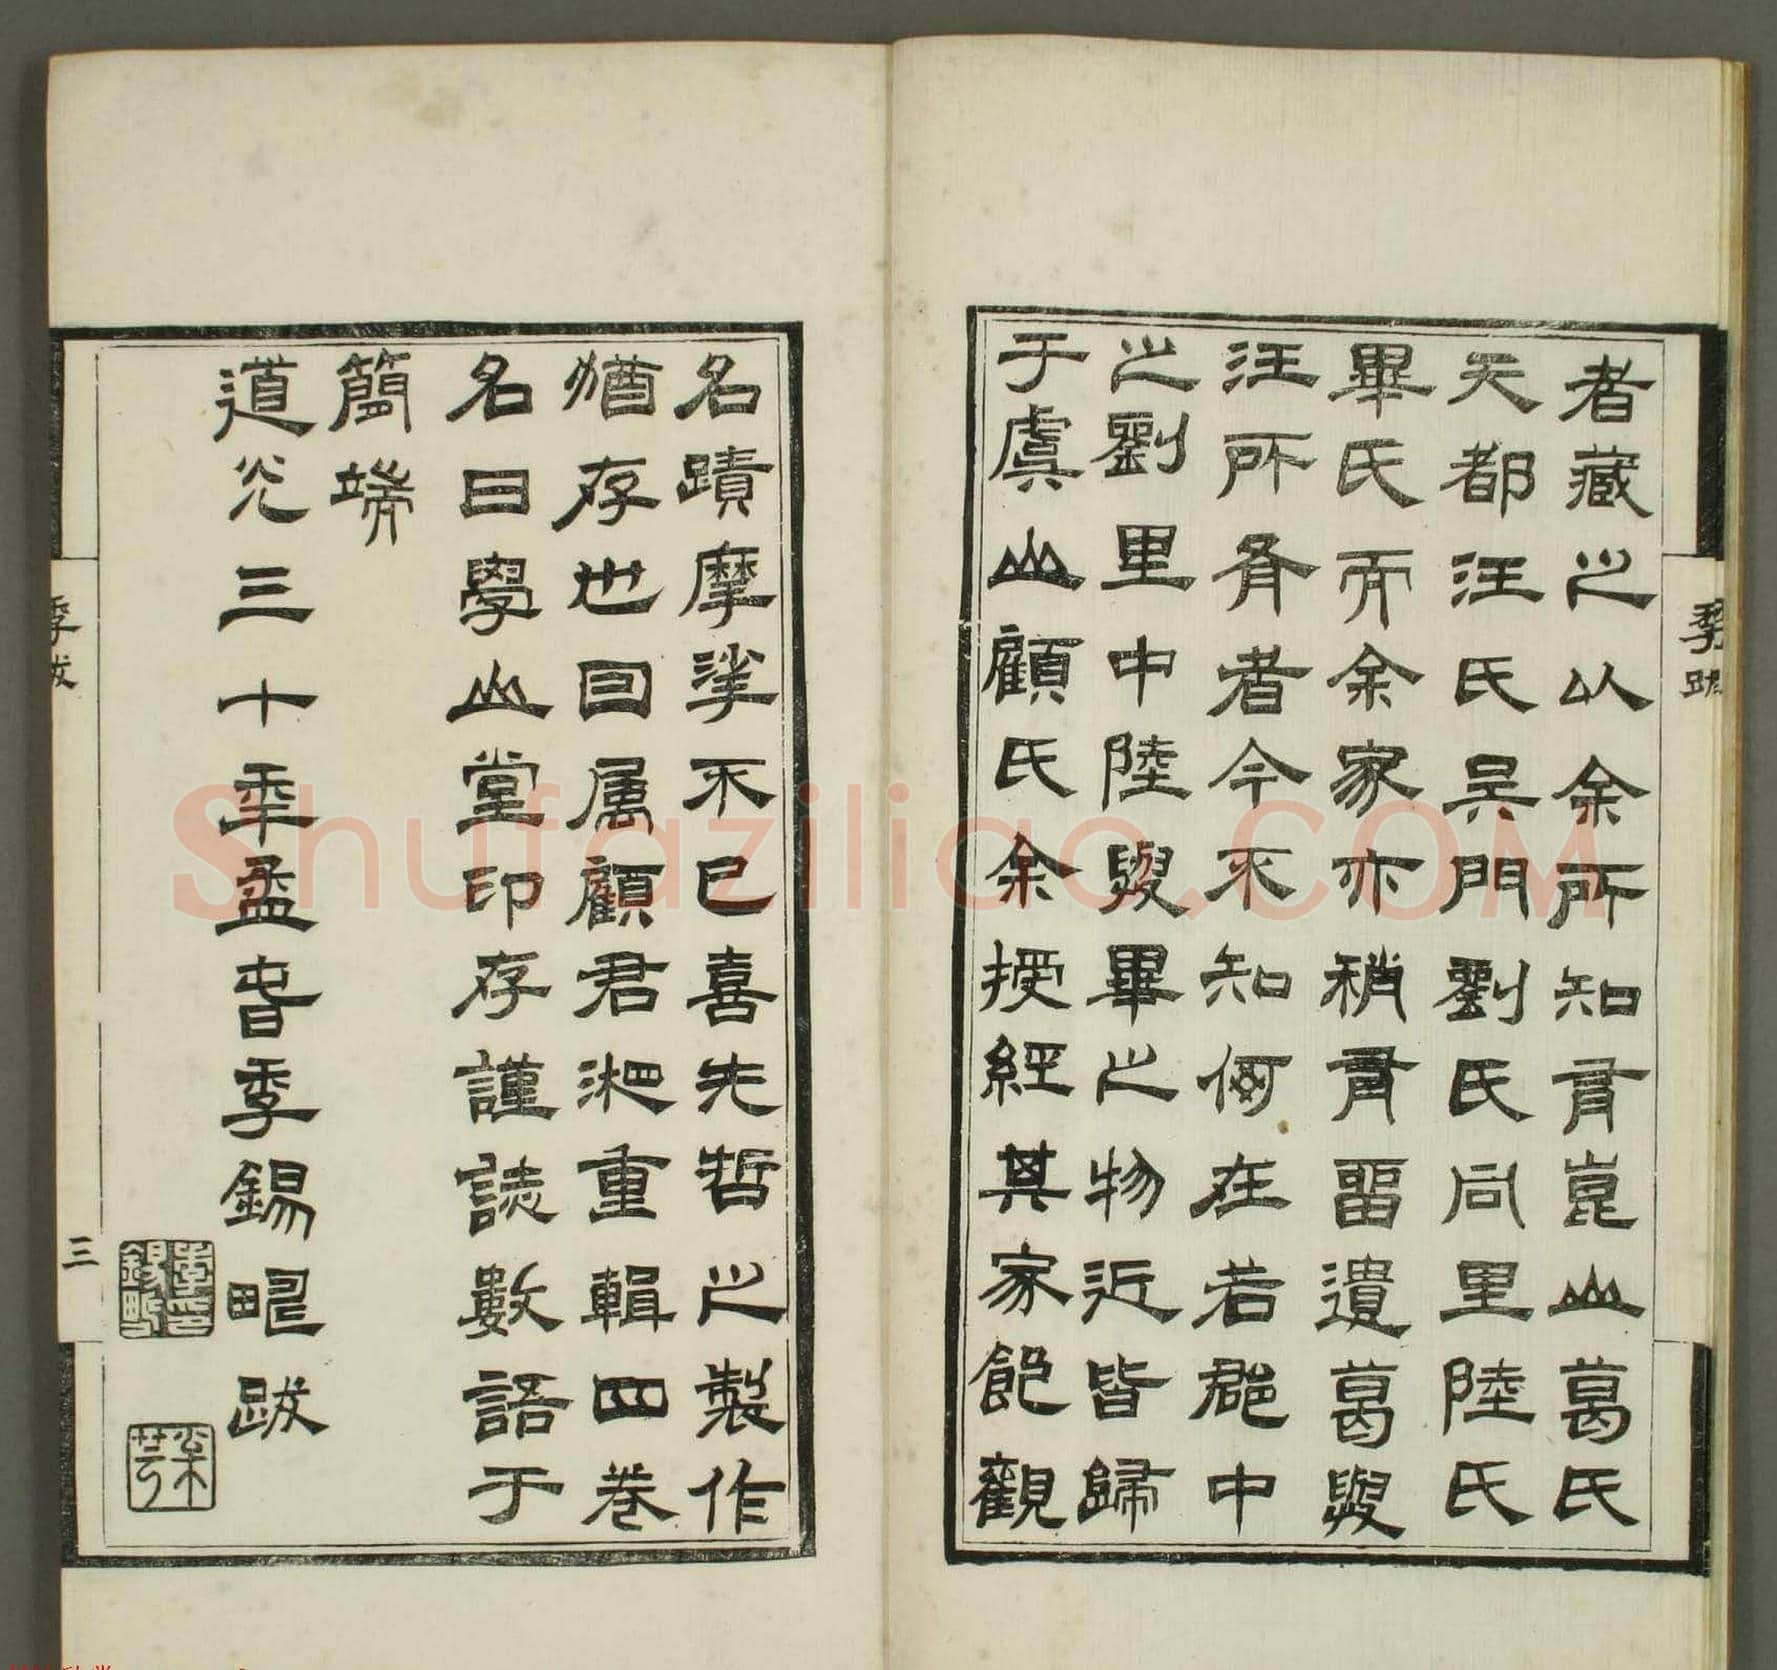 者藏之以余所知有崑山葛氏
天都汪氏吳門劉氏同里陸氏
畢氏而余家亦稍有畱遺葛與
汪所有者今不知何在若郡中
之劉里中陸與畢之物近皆歸
于虞山顧氏余授經其家飽觀
季跋
名蹟摩挲不已喜先哲之製作
猶存也因属顧君湘重輯四卷
名曰學山堂印存謹誌數語于
簡端
道光三十年孟春季錫疇跋
季跋
三
Shufaziliao.COM